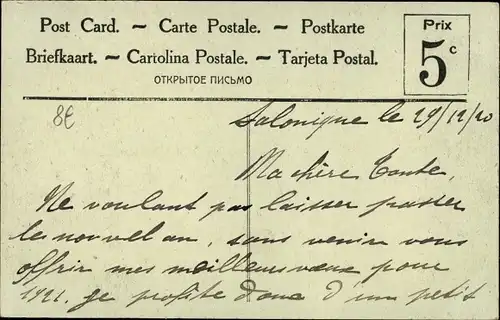 Post Card. ~ Carte Postale. ~ Postkarte
Briefkaart. ~ Cartolina Postale. ~ Tarjeta Postal.
ОТКРЫТОЕ ПИСЬМО
Prix
5 c
8€
Salonique le 29/12/20
Ma chère Tante,
Ne voulant pas laisser passer
le nouvel an, sans venir vous
offrir mes meilleurs vœux pour
1921. je profite donc d'un petit